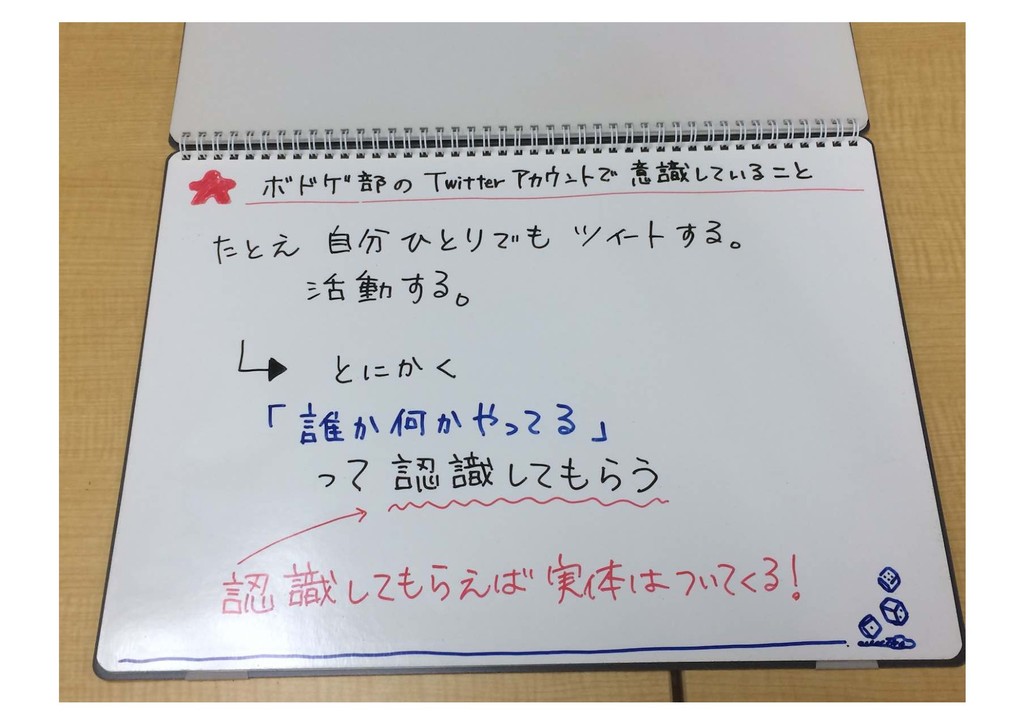 ボドゲ部の Twitterアカウントで 意識していること
たとえ 自分 ひとりでも ツイートする。
活動する。
とにかく
「誰か何かやってる」
って 認識してもらう
認識してもらえば 実体はついてくる！